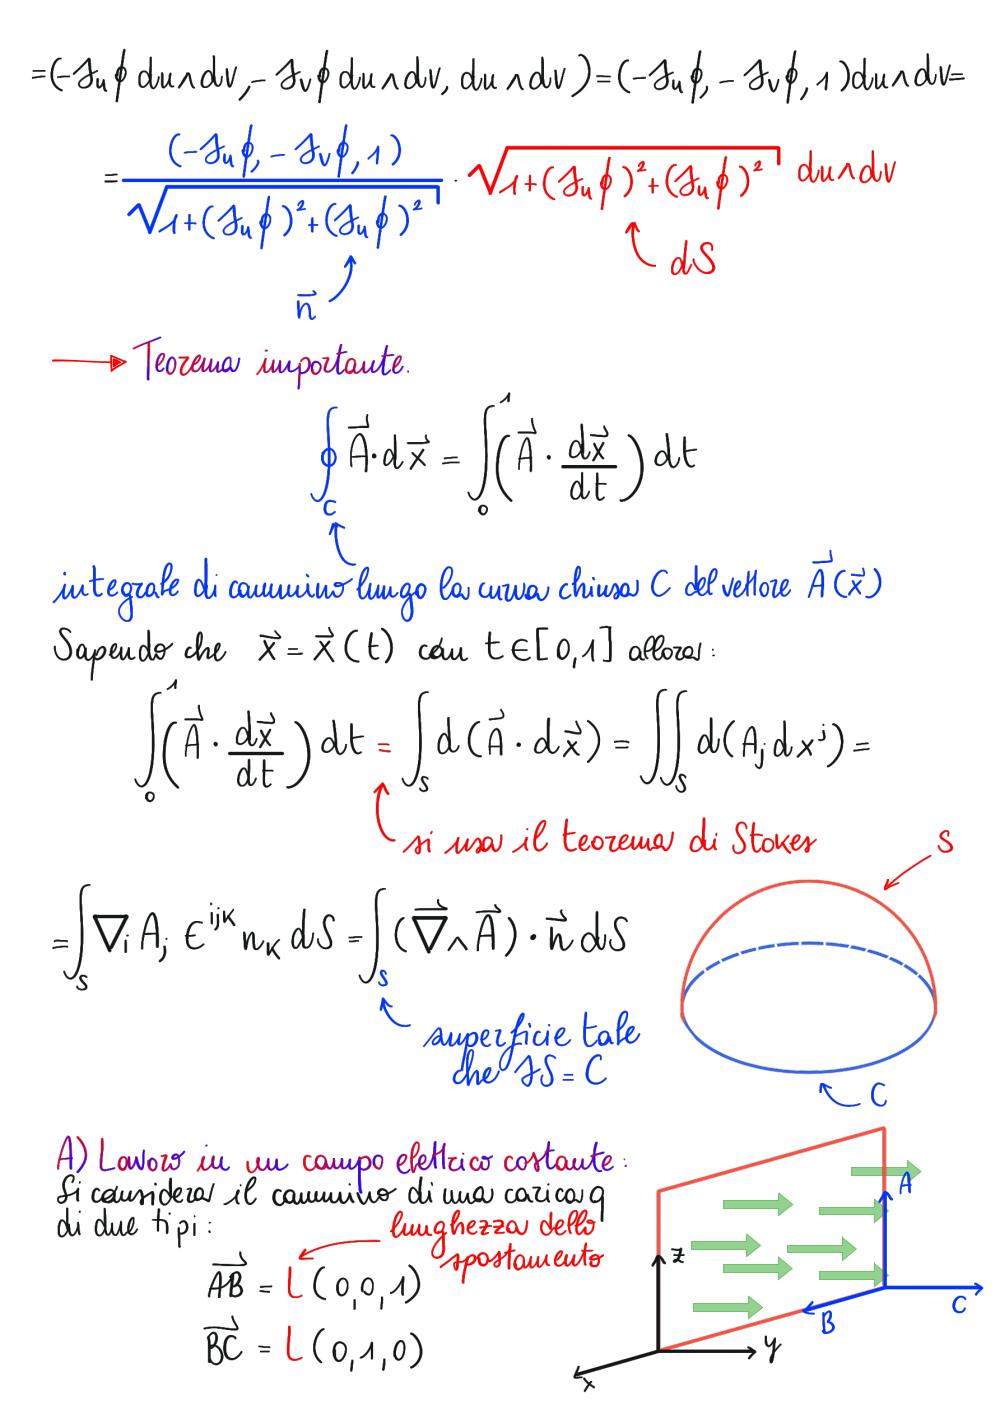 =(-∂ᵤϕ du∧dv, -∂ᵥϕ du∧dv, du∧dv)=(-∂ᵤϕ, -∂ᵥϕ, 1)du∧dv=
= (-∂ᵤϕ, -∂ᵥϕ, 1) / √(1+(∂ᵤϕ)²+(∂ᵤϕ)²) · √(1+(∂ᵤϕ)²+(∂ᵤϕ)²) du∧dv
dS
n⃗
Teorema importante.
∮_C A⃗·dx⃗ = ∫₀¹ (A⃗ · dx⃗/dt) dt
integrale di cammino lungo la curva chiusa C del vettore A⃗(x⃗)
Sapendo che x⃗ = x⃗(t) con t∈[0,1] allora:
∫₀¹ (A⃗ · dx⃗/dt) dt = ∫_S d(A⃗ · dx⃗) = ∬_S d(A_j dx^j) =
si usa il teorema di Stokes
S
= ∫_S ∇_i A_j ϵ^{ijk} n_k dS = ∫_S (∇⃗∧A⃗)·n⃗ dS
superficie tale
che ∂S = C
C
A) Lavoro in un campo elettrico costante:
Si considera il cammino di una carica q
di due tipi:
lunghezza dello
spostamento
AB⃗ = L(0,0,1)
BC⃗ = L(0,1,0)
A
z
B
C
y
x